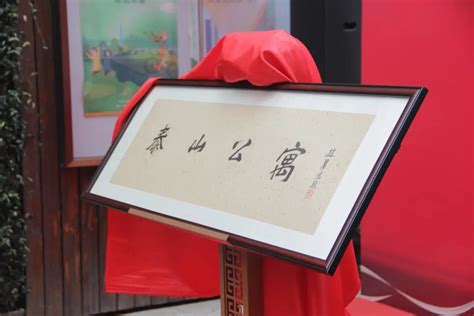 泰山公寓